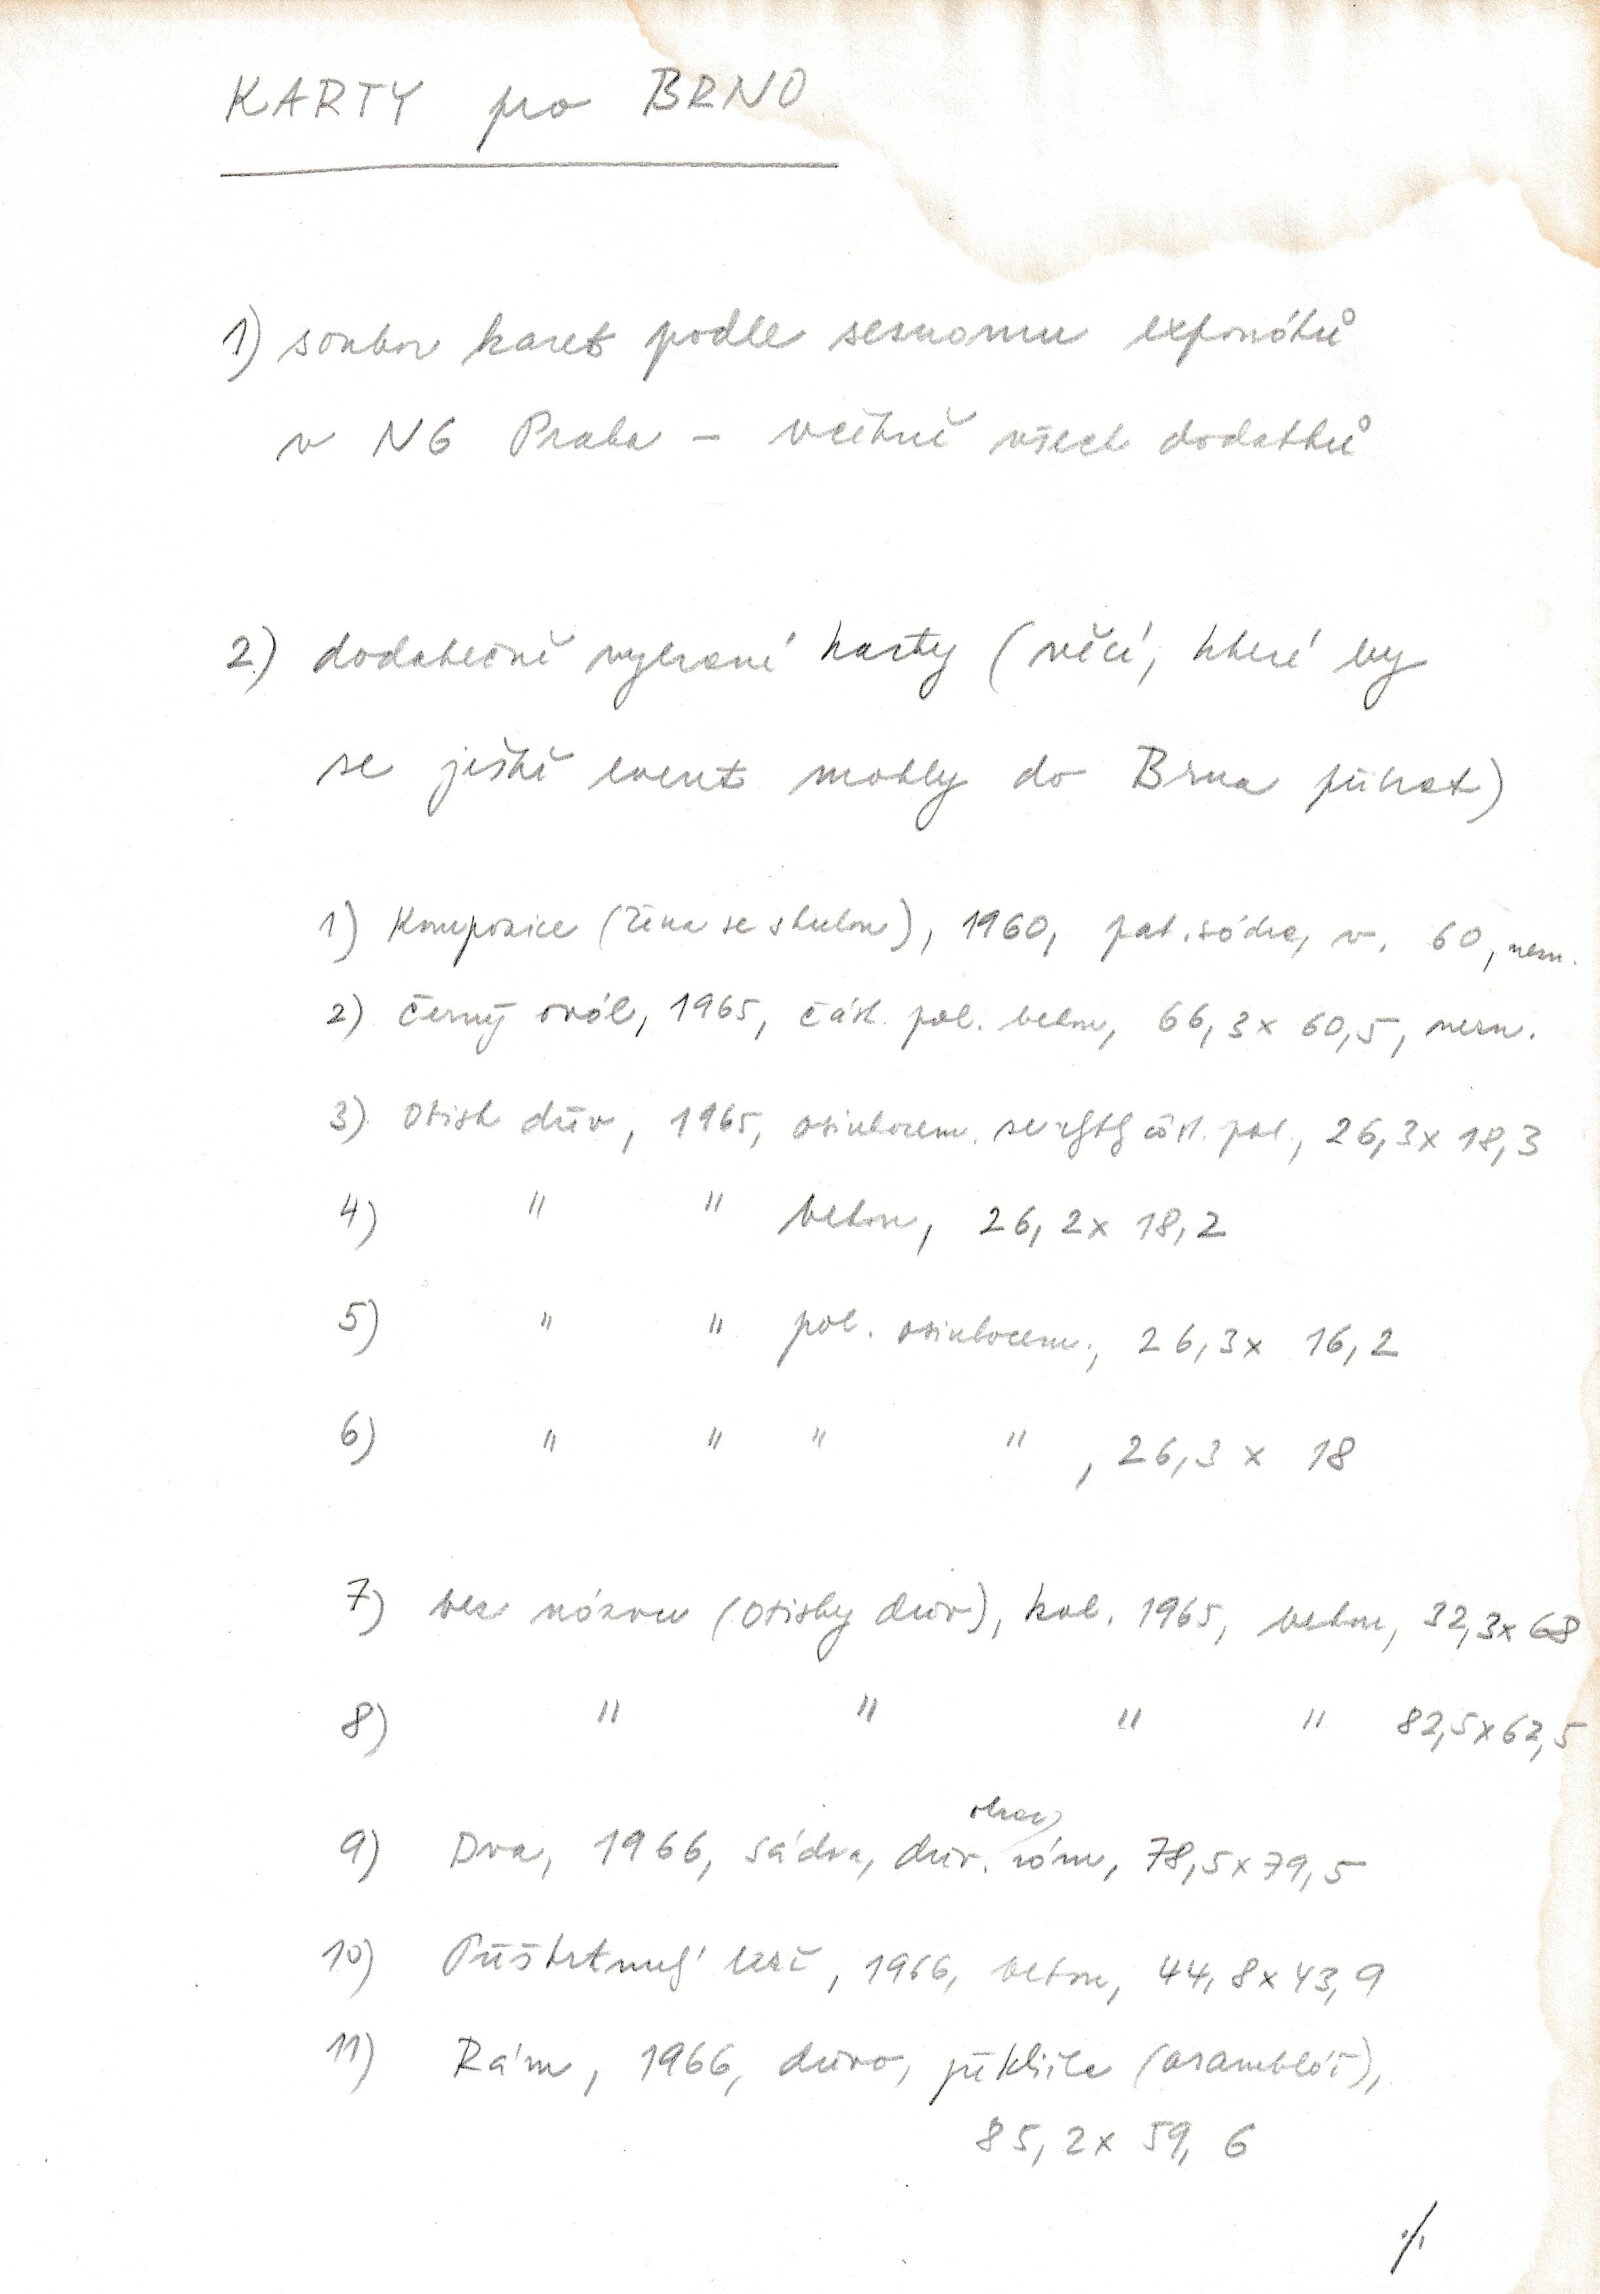 KARTY pro BRNO
1) soubor karet podle seznamu exponátů
v NG Praha – včetně všech dodatků
2) dodatečně vybrané karty (věcí, které by
se ještě event mohly do Brna přibrat)
1) Kompozice (Žena se stulou), 1960, pat. sádra, v. 60, nezn.
2) Černý ovál, 1965, část. pol. beton, 66,3 x 60,5, nezn.
3) Otisk dřev, 1965, osinkocem. část. pol., 26,3 x 18,3
4) " " beton, 26,2 x 18,2
5) " " pol. osinkocem., 26,3 x 16,2
6) " " " " , 26,3 x 18
7) bez názvu (Otisky dřev), kol. 1965, beton, 32,3 x 68
8) " " " " 82,5 x 62,5
9) Dva, 1966, sádra, dřev. rám, 78,5 x 79,5
10) Přeškrtnutý, 1966, beton, 44,8 x 43,9
11) Rám, 1966, dřevo, překližka (asambláž),
85,2 x 59,6
./.